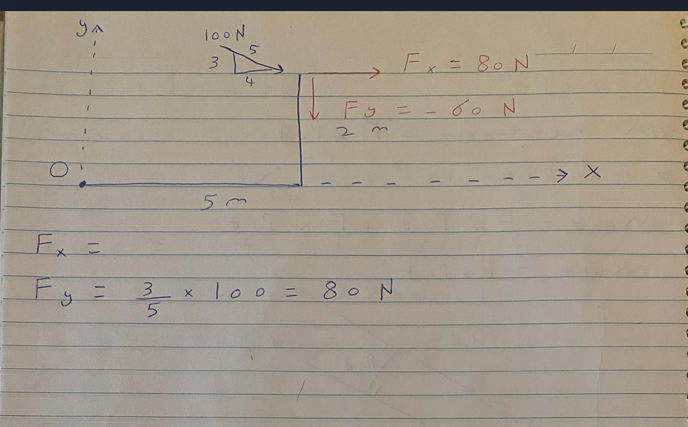 y
100N
5
3
4
Fx = 80 N
Fy = - 60 N
2 m
O
x
5 m
Fx =
Fy = 3/5 × 100 = 80 N